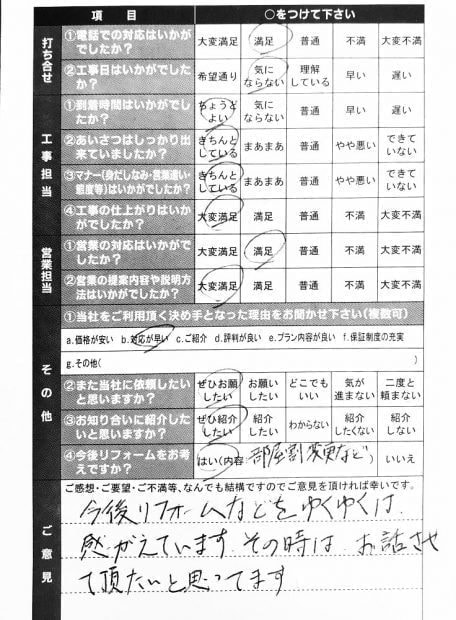 項目 ○をつけて下さい
打ち合せ
①電話での対応はいかがでしたか? 大変満足 満足 普通 不満 大変不満
②工事日はいかがでしたか? 希望通り 気にならない 理解している 早い 遅い
工事担当
①到着時間はいかがでしたか? ちょうどよい 気にならない 普通 早い 遅い
②あいさつはしっかり出来ていましたか? きちんとしている まあまあ 普通 やや悪い できていない
③マナー(身だしなみ・言葉遣い・態度等)はいかがでしたか? きちんとしている まあまあ 普通 やや悪い できていない
④工事の仕上がりはいかがでしたか? 大変満足 満足 普通 不満 大変不満
営業担当
①営業の対応はいかがでしたか? 大変満足 満足 普通 不満 大変不満
②営業の提案内容や説明方法はいかがでしたか? 大変満足 満足 普通 不満 大変不満
その他
①当社をご利用頂く決め手となった理由をお聞かせ下さい(複数可)
a.価格が安い b.対応が早い c.ご紹介 d.評判が良い e.プラン内容が良い f.保証制度の充実
g.その他( )
②また当社に依頼したいと思いますか? ぜひお願いしたい お願いしたい どこでもいい 気が進まない 二度と頼まない
③お知り合いに紹介したいと思いますか? ぜひ紹介したい 紹介したい わからない 紹介したくない 紹介しない
④今後リフォームをお考えですか? はい(内容:部屋割変更など) いいえ
ご意見
ご感想・ご要望・ご不満等、なんでも結構ですのでご意見を頂ければ幸いです。
今後リフォームなどをゆくゆくは
感がえています。その時は お話させ
て頂たいと思ってます